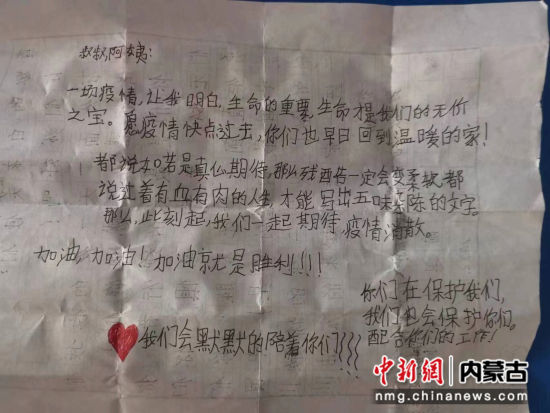 叔叔,阿姨:
一切疫情,让我明白,生命的重要,生命才是我们的无价
之宝。愿疫情快点过去,你们也早日回到温暖的家!
都说如若是真心期待,那么残酷一定会变柔软,都
说过着有血有肉的人生,才能写出五味杂陈的文字。
那么,此刻起,我们一起期待,疫情消散。
加油,加油!加油就是胜利!!!
我们会默默的陪着你们
你们在保护我们,
我们也会保护你们。
配合你们的工作!
中新网 内蒙古
nmg.chinanews.com.cn